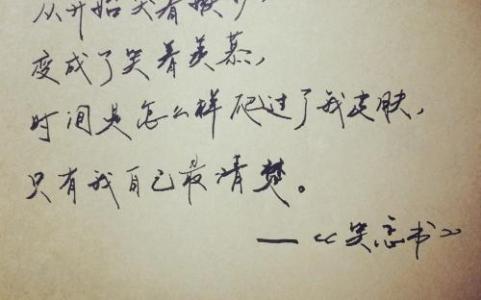 从开始哭着嫉妒
变成了笑着羡慕,
时间是怎么样爬过了我皮肤,
只有我自己最清楚。
——《笑忘书》